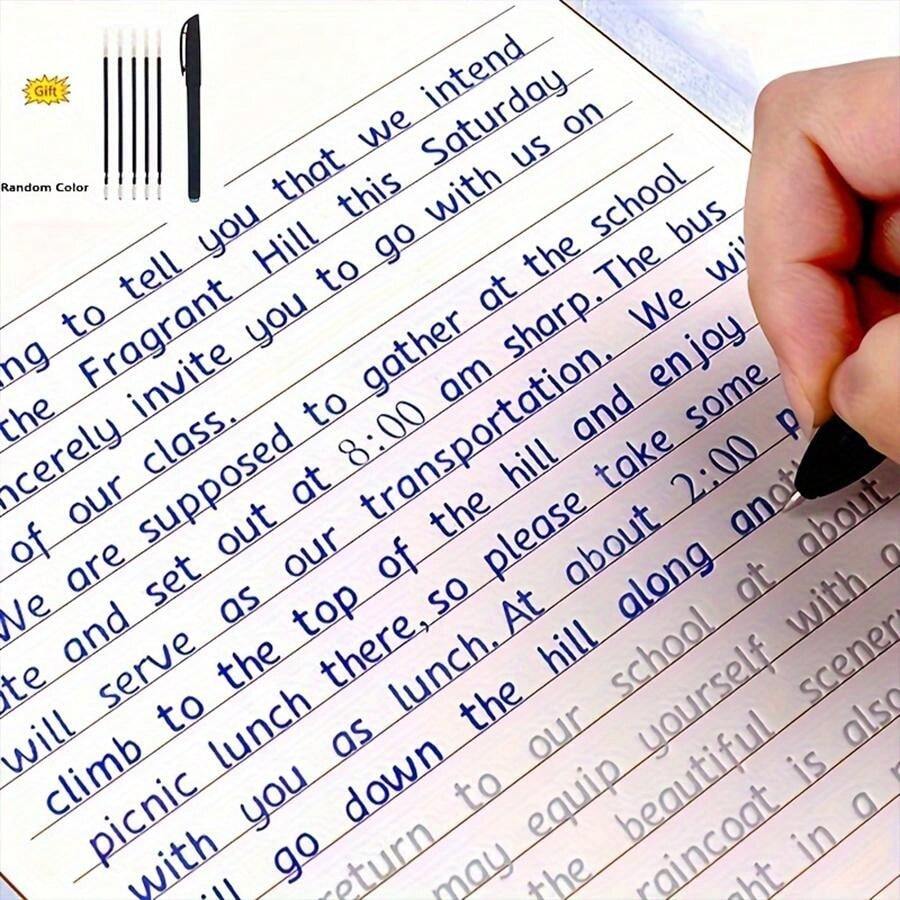 Gift
Random Color
ng to tell you that we intend
the Fragrant Hill this Saturday
ncerely invite you to go with us on
of our class.
We are supposed to gather at the school
ate and set out at 8:00 am sharp. The bus
will serve as our transportation. We wil
climb to the top of the hill and enjoy
picnic lunch there, so please take some
with you as lunch. At about 2:00 p
ill go down the hill along anoth
return to our school at about
may equip yourself with a
the beautiful scenery
raincoat is also
ght in a